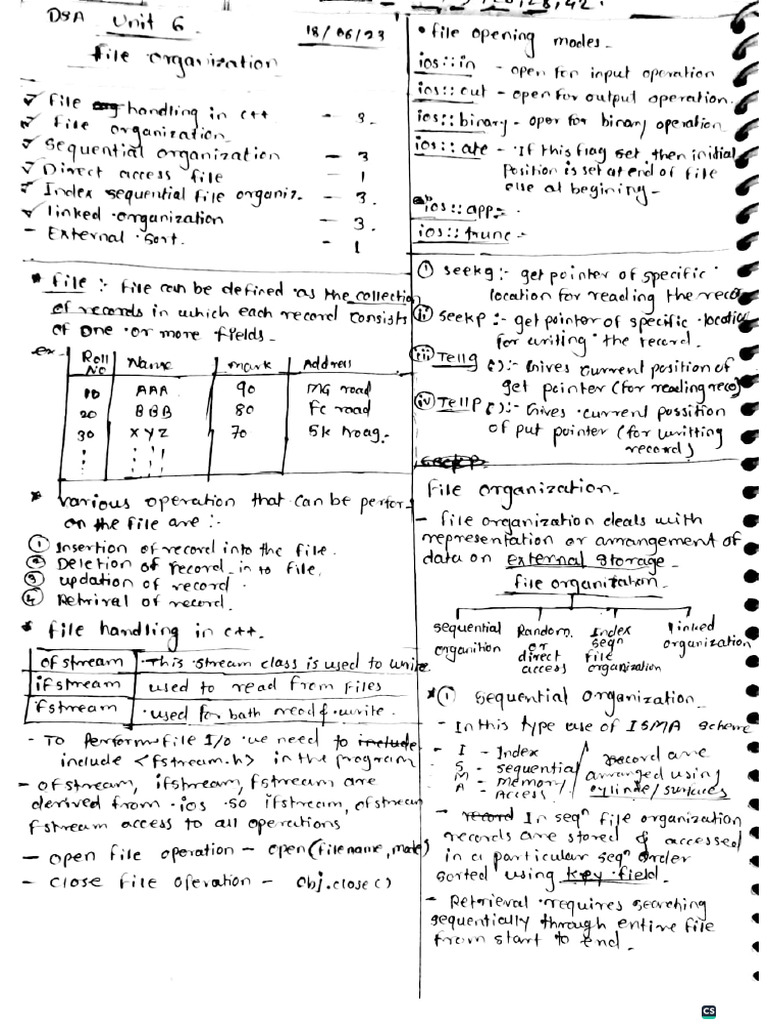 DSA Unit 6
18/06/23
file organization
file handling in c++ - 3.
file organization
sequential organization - 3
Direct access file - 1
Index sequential file organiz. - 3.
linked organization - 3.
- External sort. - 1
* file :- file can be defined as the collection
of records in which each record consists
of one or more fields-
ex-
Roll No Name mark Address
10 AAA 90 MG road
20 BBB 80 FC road
30 XYZ 70 SK road-
* various operation that can be perfor-
on the file are :-
① Insertion of record into the file.
② Deletion of record in to file.
③ updation of record.
④ Retrival of record.
* file handling in c++.
ofstream This stream class is used to write
ifstream used to read from files
fstream used for both read & write.
- To perform file I/o we need to include
include <fstream.h> in the program
- ofstream, ifstream, fstream are
derived from ios so ifstream, ofstream
fstream access to all operations
- open file operation - open(filename, mode)
- close file operation - obj.close()
• file opening modes-
ios::in - open for input operation
ios::out - open for output operation.
ios::binary - oper for binary operation
ios::ate - If this flag set then initial
position is set at end of file
else at begining-
ios::app:-
ios::trunc-
① seekg :- get pointer of specific
location for reading the reco
ii seekp :- get pointer of specific locatio
for writing the record.
iii Tellg():- Gives current position of
get pointer (for reading reco)
iv Tellp():- Gives current possition
of put pointer (for writting
record)
file organization-
- file organization deals with
representation or arrangement of
data on external storage-
file organization-
sequential organition
Random or direct access
Index seqn file organization
linked organization
* ① sequential organization-
- In this type use of ISMA scheme
- I - Index
S - sequential
M - memory
A - Access
record are
arranged using
cylinde/surfaces
- record In seqn file organization
records are stored & accessed
in a particular seqn order
sorted using key field.
- Retrieval requires searching
sequentially through entire file
from start to end-
CS